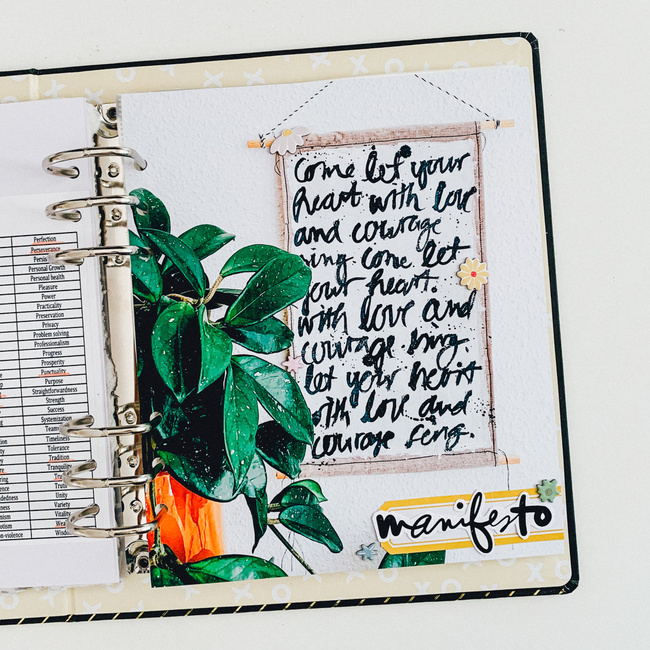 Perfection
Perseverance
Personal Growth
Personal health
Pleasure
Power
Practicality
Preservation
Privacy
Problem solving
Professionalism
Progress
Prosperity
Punctuality
Purpose
Straightforwardness
Strength
Success
Systemization
Timeliness
Tolerance
Tradition
Truth
Unity
Variety
Vitality
come let your
heart with love
and courage
sing come let
your heart.
with love and
courage. sing
let your heart
with love and
courage sing.
manifesto